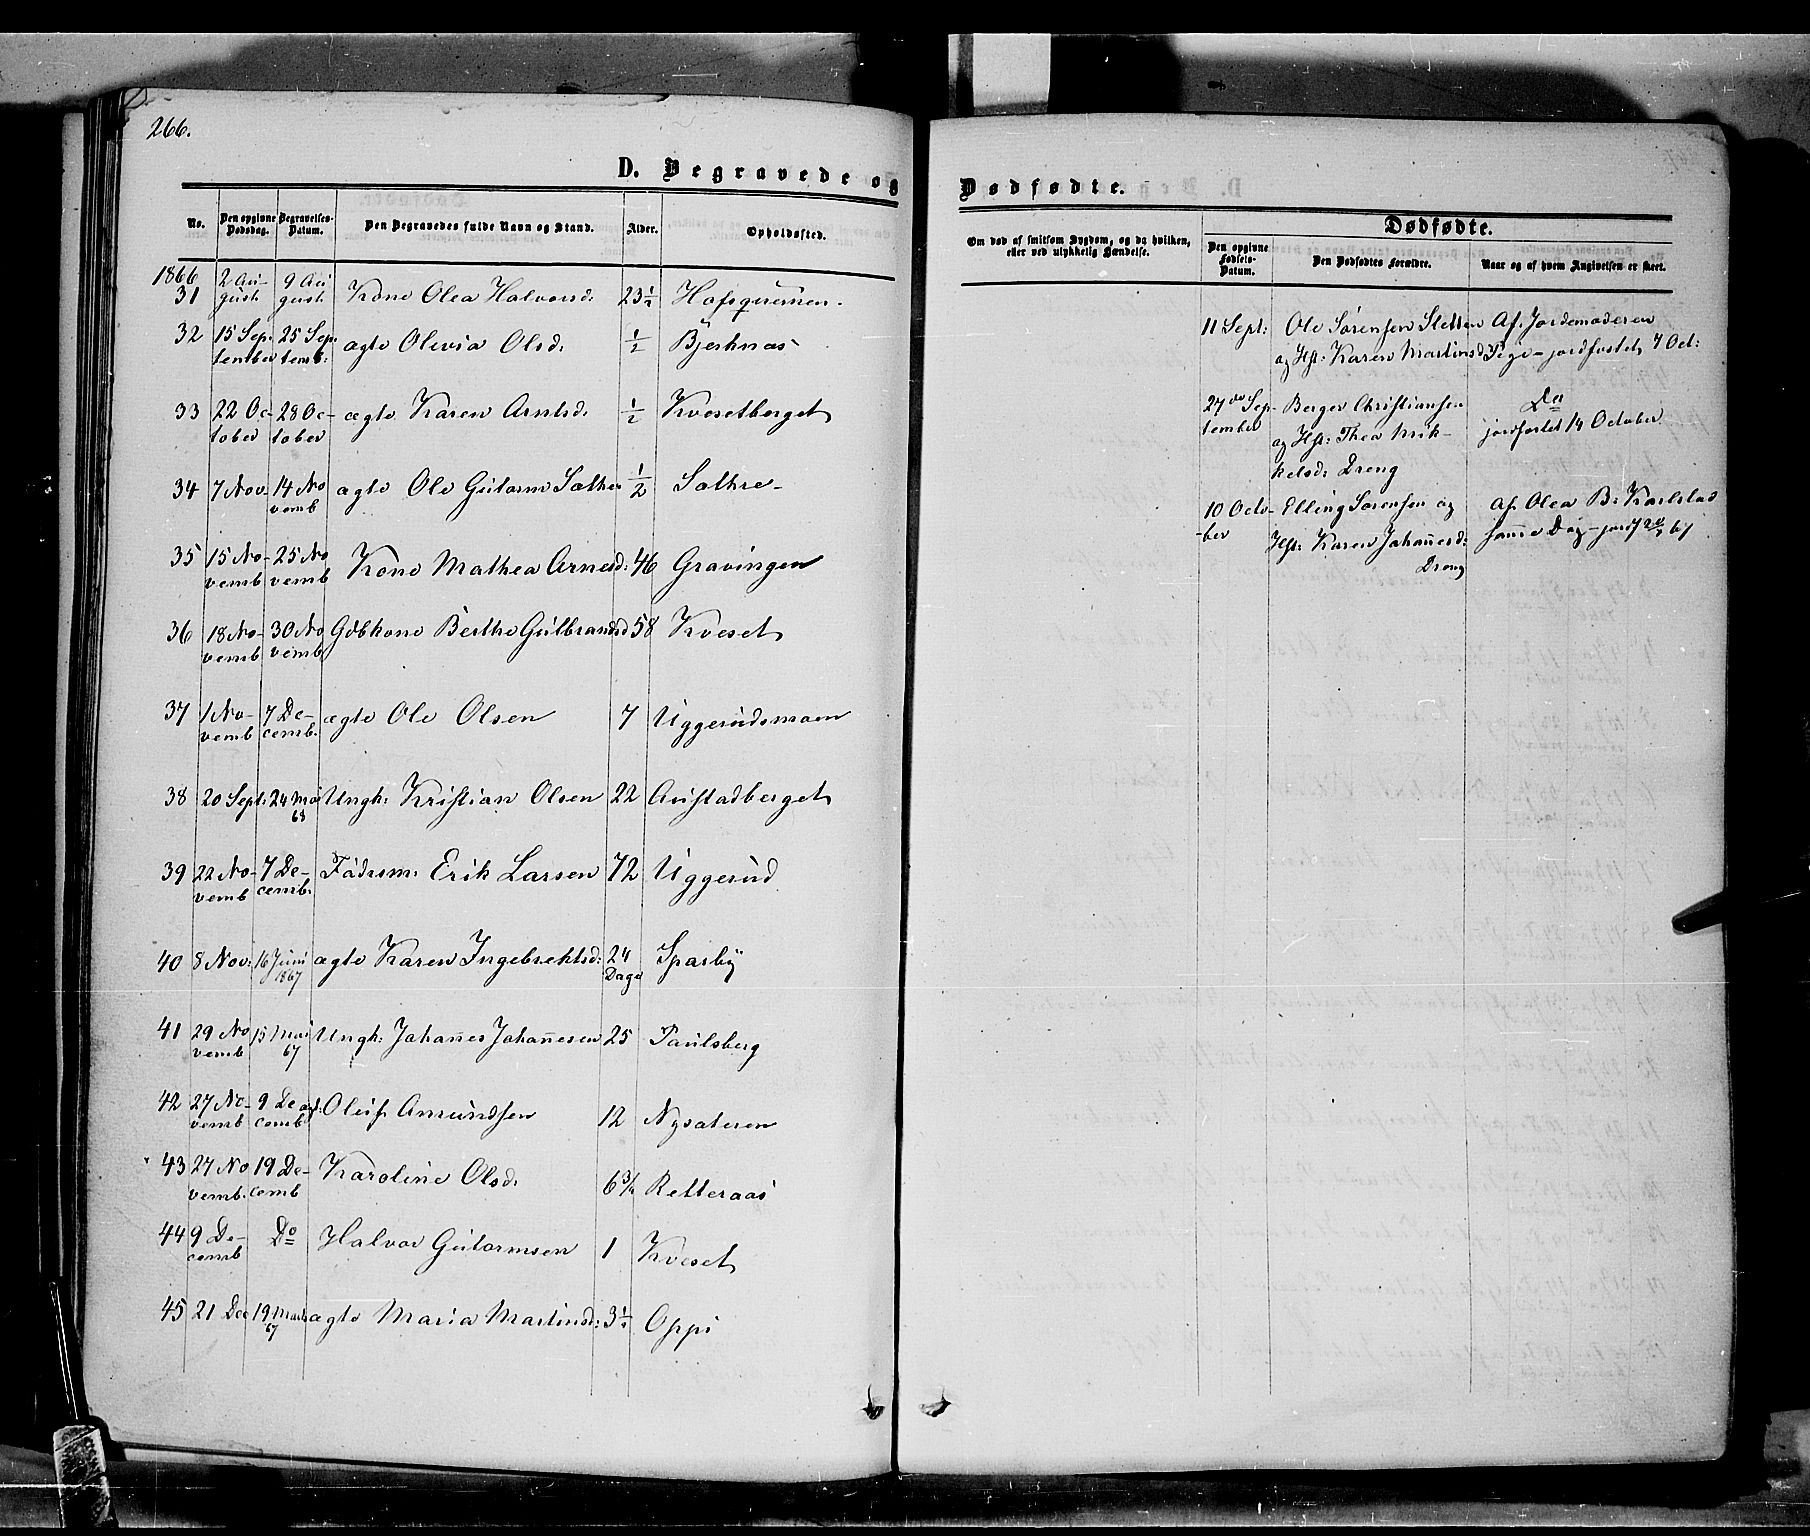 266.
D. Begravede og
Dødfødte.
No.
Den opgivne Dødsdag.
Begravelses-Datum.
Den Begravedes fulde Navn og Stand.
Alder.
Opholdssted.
Om død af smitsom Sygdom, og da hvilken, eller ved ulykkelig Hændelse.
Dødfødte.
Den opgivne Fødsels-Datum.
Den Dødfødtes Forældre.
Naar og af hvem Angivelsen er skeet.
1866
31 2 August 9 August Kone Olea Halvorsd. 23½
32 15 September 25 Septemb: ægte Olivia Olsd. ½ Bjerknæs
33 22 October 28 October ægte Karen Arntsd. ½ Kvesetberget
34 7 Nov 14 Novemb ægte Ole Gutorm Sæthre ½ Sæthre
35 15 Novemb 25 Novemb Kone Mathea Arnesd: 46 Gravingen
36 18 Novemb 30 Novemb Gbkone Berthe Gulbrandsd 58 Kveset
37 1 Novemb 7 Decemb. ægte Ole Olsen 7 Uggerudsmoen
38 20 Sept: 24 Mai 68 Ungk: Kristian Olsen 22 Austadberget
39 22 Novemb 7 Decemb. Fdrsm: Erik Larsen 72 Uggerud
40 8 Nov: 16 Juni 1867 ægte Karen Ingebrektsd: 24 Dage Sparby
41 29 Novemb 15 Mai 67 Ungk: Johañes Johañesen 25 Paulsberg
42 27 Novemb 9 Decemb Oluf Amundsen 12 Nysæteren
43 27 Novemb. 19 Decemb Karoline Olsd. 6¾ Retteraas
44 9 Decemb Do Halvor Gutormsen 1 Kveset
45 21 Dec 19 Marts 67 ægte Maria Martinsd: 3½ Oppi
11 Sept: Ole Sørensen Sletten Af Jordemoderen
og Hst: Karen Martinsd Pige - jordfæstet 7 Oct:
27de September Berger Christiansen Do
og Hst: Thea Mikkelsd: Dreng jordfæstet 14 October
10 October Elling Sørensen og Af Olea B: Karlstad
Hst: Karen Johañesd: Dreng samme Dag - jordf